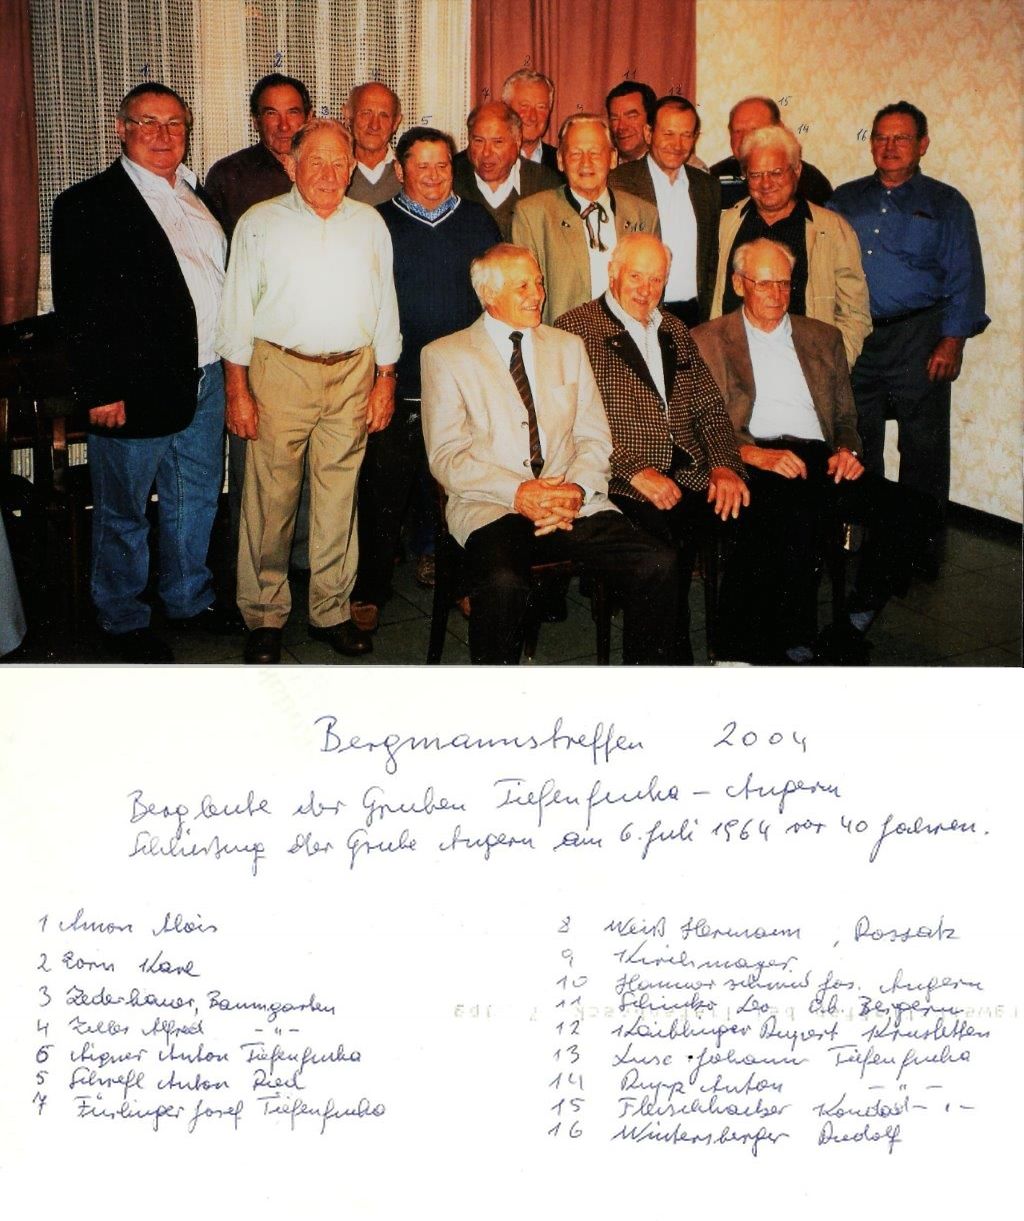 1
2
3
5
7
8
9
11
12
14
15
16
10
Bergmannstreffen 2004
Bergleute der Gruben Tiefenfucha - Angern
Schließung der Grube Angern am 6. Juli 1964 vor 40 Jahren.
1 Amon Alois
2 Dorn Karl
3 Zederbauer, Baumgarten
4 Zeller Alfred -"-
6 Aigner Anton Tiefenfucha
5 Schrefl Anton Ried
7 Fürlinger Josef Tiefenfucha
8 Weiß Hermann, Rossatz
9 Kirchmayer
10 Hammerschmid Jos. Angern
11 Schinko Leo Bergern
12 Kaiblinger Rupert Krustetten
13 Johann Tiefenfucha
14 Rupp Anton -"-
15 Fleischhacker Konrad -"-
16 Wintersberger Rudolf